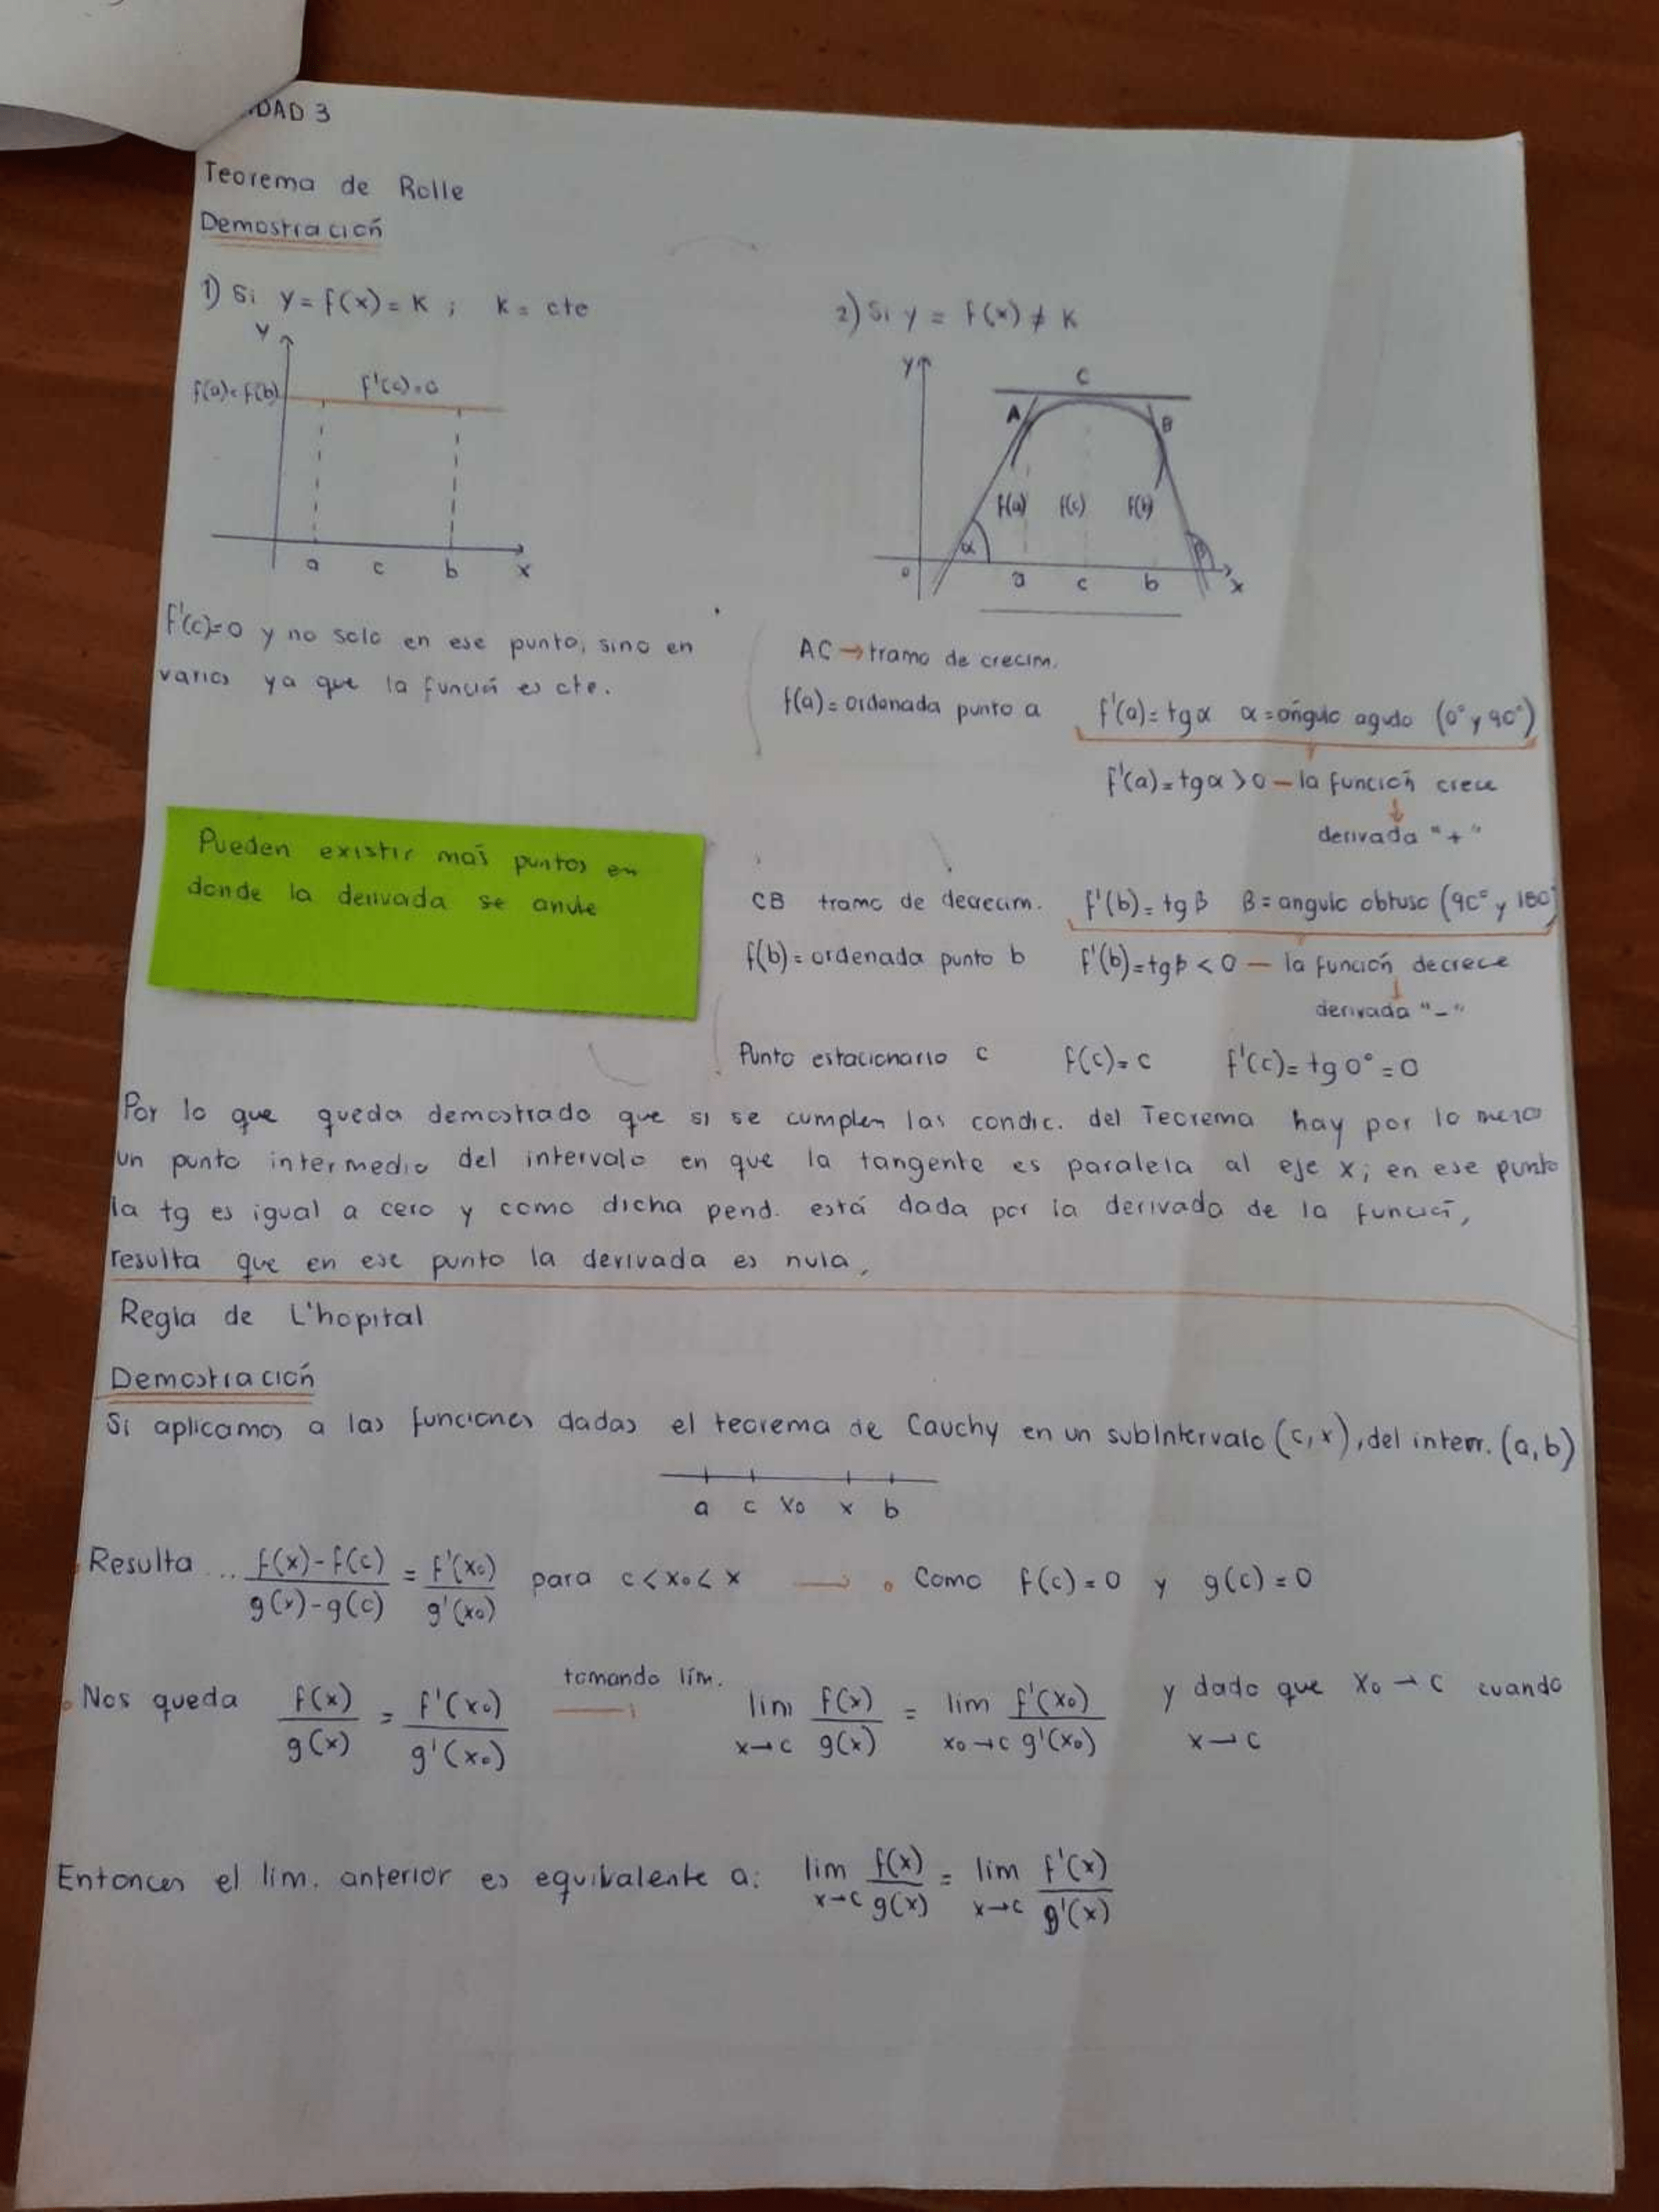 DAD 3
Teorema de Rolle
Demostración
1) Si y = f(x) = K ; K = cte
y
f(a)=f(b)
f'(c)=0
a c b x
f'(c)=0 y no solo en ese punto, sino en
varios ya que la función es cte.
2) Si y = f(x) ≠ K
y
C
A
B
f(a) f(c) f(b)
α
β
o a c b x
AC → tramo de crecim.
f(a) = ordenada punto a f'(a) = tg α α = ángulo agudo (0° y 90°)
f'(a) = tg α > 0 — la función crece
↓
derivada "+"
Pueden existir más puntos en
donde la derivada se anule
CB tramo de decrecim. f'(b) = tg β β = angulo obtuso (90° y 180°
f(b) = ordenada punto b f'(b) = tg β < 0 — la función decrece
↓
derivada "-"
Punto estacionario c f(c) = c f'(c) = tg 0° = 0
Por lo que queda demostrado que si se cumplen las condic. del Teorema hay por lo menos
un punto intermedio del intervalo en que la tangente es paralela al eje x; en ese punto
la tg es igual a cero y como dicha pend. está dada por la derivada de la función,
resulta que en ese punto la derivada es nula,
Regla de L'hopital
Demostración
Si aplicamos a las funciones dadas el teorema de Cauchy en un subintervalo (c,x), del interr. (a,b)
a c x₀ x b
Resulta ... f(x)-f(c) / g(x)-g(c) = f'(x₀) / g'(x₀) para c < x₀ < x → Como f(c) = 0 y g(c) = 0
Nos queda f(x) / g(x) = f'(x₀) / g'(x₀) tomando lím. → lim x→c f(x) / g(x) = lim x₀→c f'(x₀) / g'(x₀) y dado que x₀ → c cuando
x → c
Entonces el lim. anterior es equivalente a: lim x→c f(x) / g(x) = lim x→c f'(x) / g'(x)